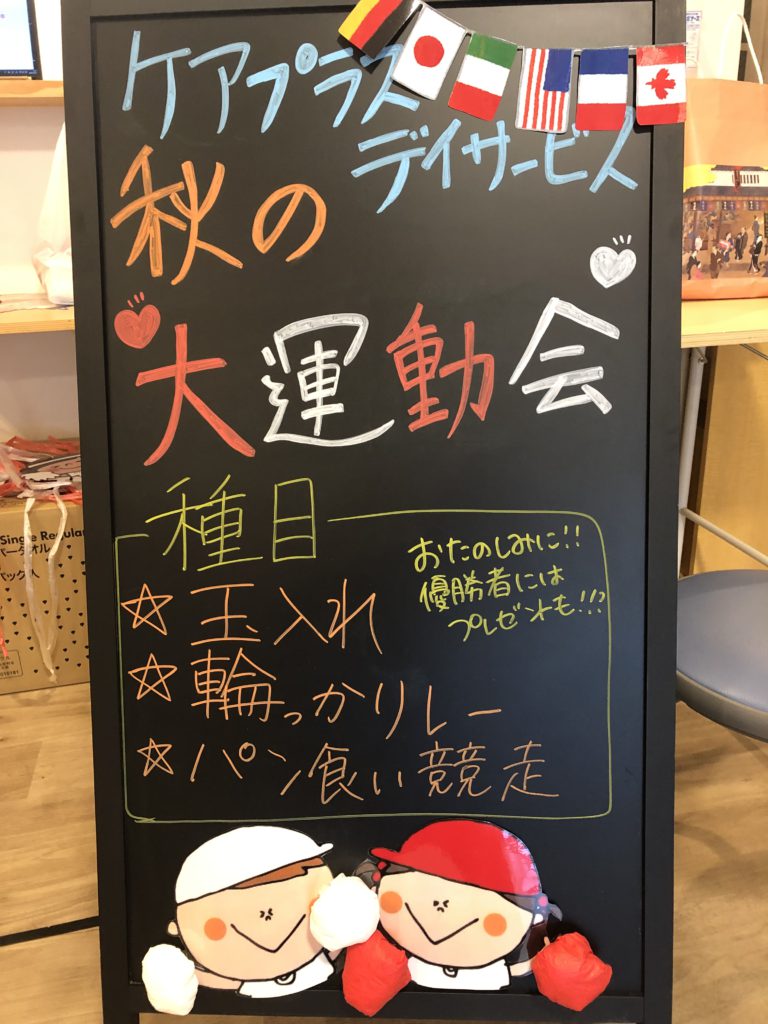 ケアプラス
デイサービス
秋の
大運動会
種目
おたのしみに!!
優勝者には
プレゼントも!!?
☆玉入れ
☆輪っかリレー
☆パン食い競走
Single Regular
パータオル
パック入